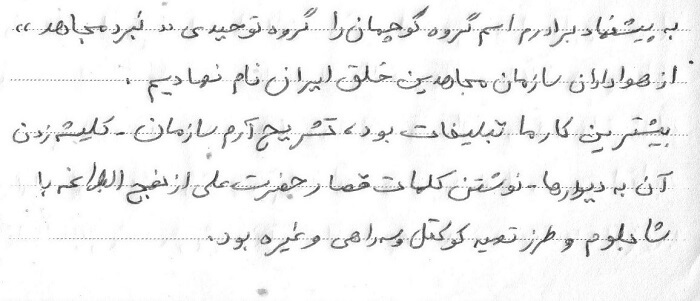 به پیشنهاد برادرم اسم گروه کوچمان را گروه توحیدی „ نبرد مجاهد „
از هواداران سازمان مجاهدین خلق ایران نام نهادیم .
بیشترین کار ما تبلیغات بود، تشریح آرم سازمان - کلیشه زدن
آن به دیوارها - نوشتن کلمات قصار حضرت علی از نهج البلاغه با
شابلوم و طرز تهیه کوکتل و سه راهی و غیره بود.